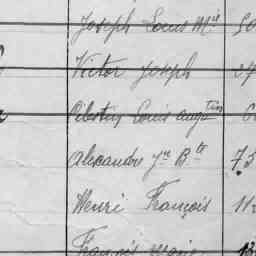 Joseph Louis Mie
Victor Joseph 27
Célestin Louis Augtin
Alexandre Jn Bte 75
Henri François
François Marie